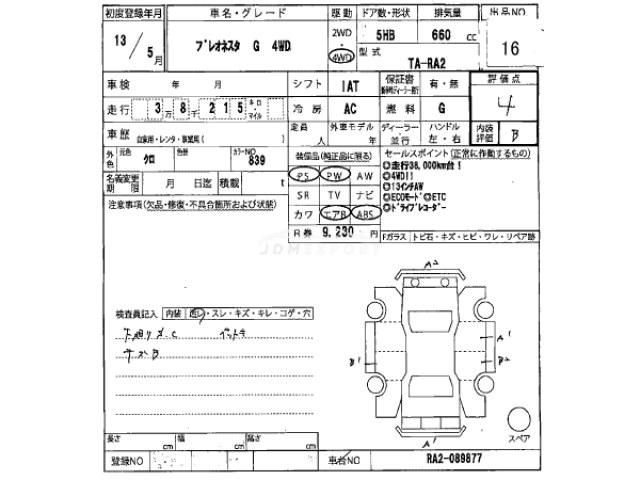 初度登録年月 車名・グレード 駆動 ドア数・形状 排気量 出品NO
13 / 5月 プレオネスタ G 4WD 2WD 4WD 5HB 660 cc 16
型式 TA-RA2
車検 年 月 シフト IAT 保証書 有・無 評価点
走行 3万8千215 キロ・マイル 冷房 AC 燃料 G 4
車歴 自家用・レンタ・事業用( ) 定員 人 外車モデル 年 ディーラー・並行 ハンドル 左・右 内装評価 B
外色 元色 クロ 色替 カラーNO 839
装備品(純正品に限る) セールスポイント(正常に作動するもの)
名義変更期限 月 日迄 積載 t
PS PW AW
SR TV ナビ
カワ エアB ABS
R券 9,230 円
◎走行38,000km台!
◎4WD!!
◎13インチAW
◎ECOモード◎ETC
◎ドライブレコーダー
注意事項(欠品・修復・不具合箇所および状態)
Fガラス トビ石・キズ・ヒビ・ワレ・リペア跡
JDMEXPORT
A2
検査員記入 内装 汚レ・スレ・キズ・キレ・コゲ・穴
A1
B1
B2
A1
スペア
長さ cm 幅 cm 高さ cm
登録NO 車台NO RA2-089877